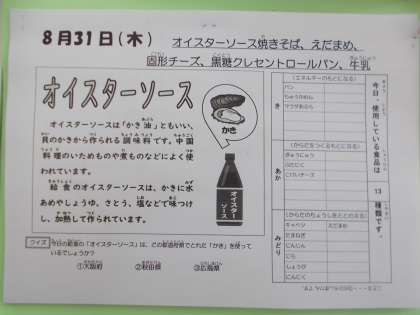 8月31日(木)
オイスターソース焼きそば、えだまめ、
固形チーズ、黒糖クレセントロールパン、牛乳
オイスターソース
オイスターソースは「かき油」ともいい、
貝のかきから作られる調味料です。中国
料理のいためものや煮ものなどによく使
われています。
給食のオイスターソースは、かきに水
あめやしょうゆ、さとう、塩などで味つけ
し、加熱して作られています。
かき
オイスターソース
今日、使用している食品は
13
種類です。
き
(エネルギーのもとになる)
パン
ちゅうかめん
サラダあぶら
あか
(からだをつくるもとになる)
ぎゅうにゅう
こけいチーズ
みどり
(からだのちょうしをととのえる)
キャベツ
えだまめ
たまねぎ
にんじん
にら
しょうが
にんにく
クイズ
今日の給食の「オイスターソース」は、どの都道府県でとれた「かき」を使って
いるでしょうか?
①大阪府 ②秋田県 ③広島県